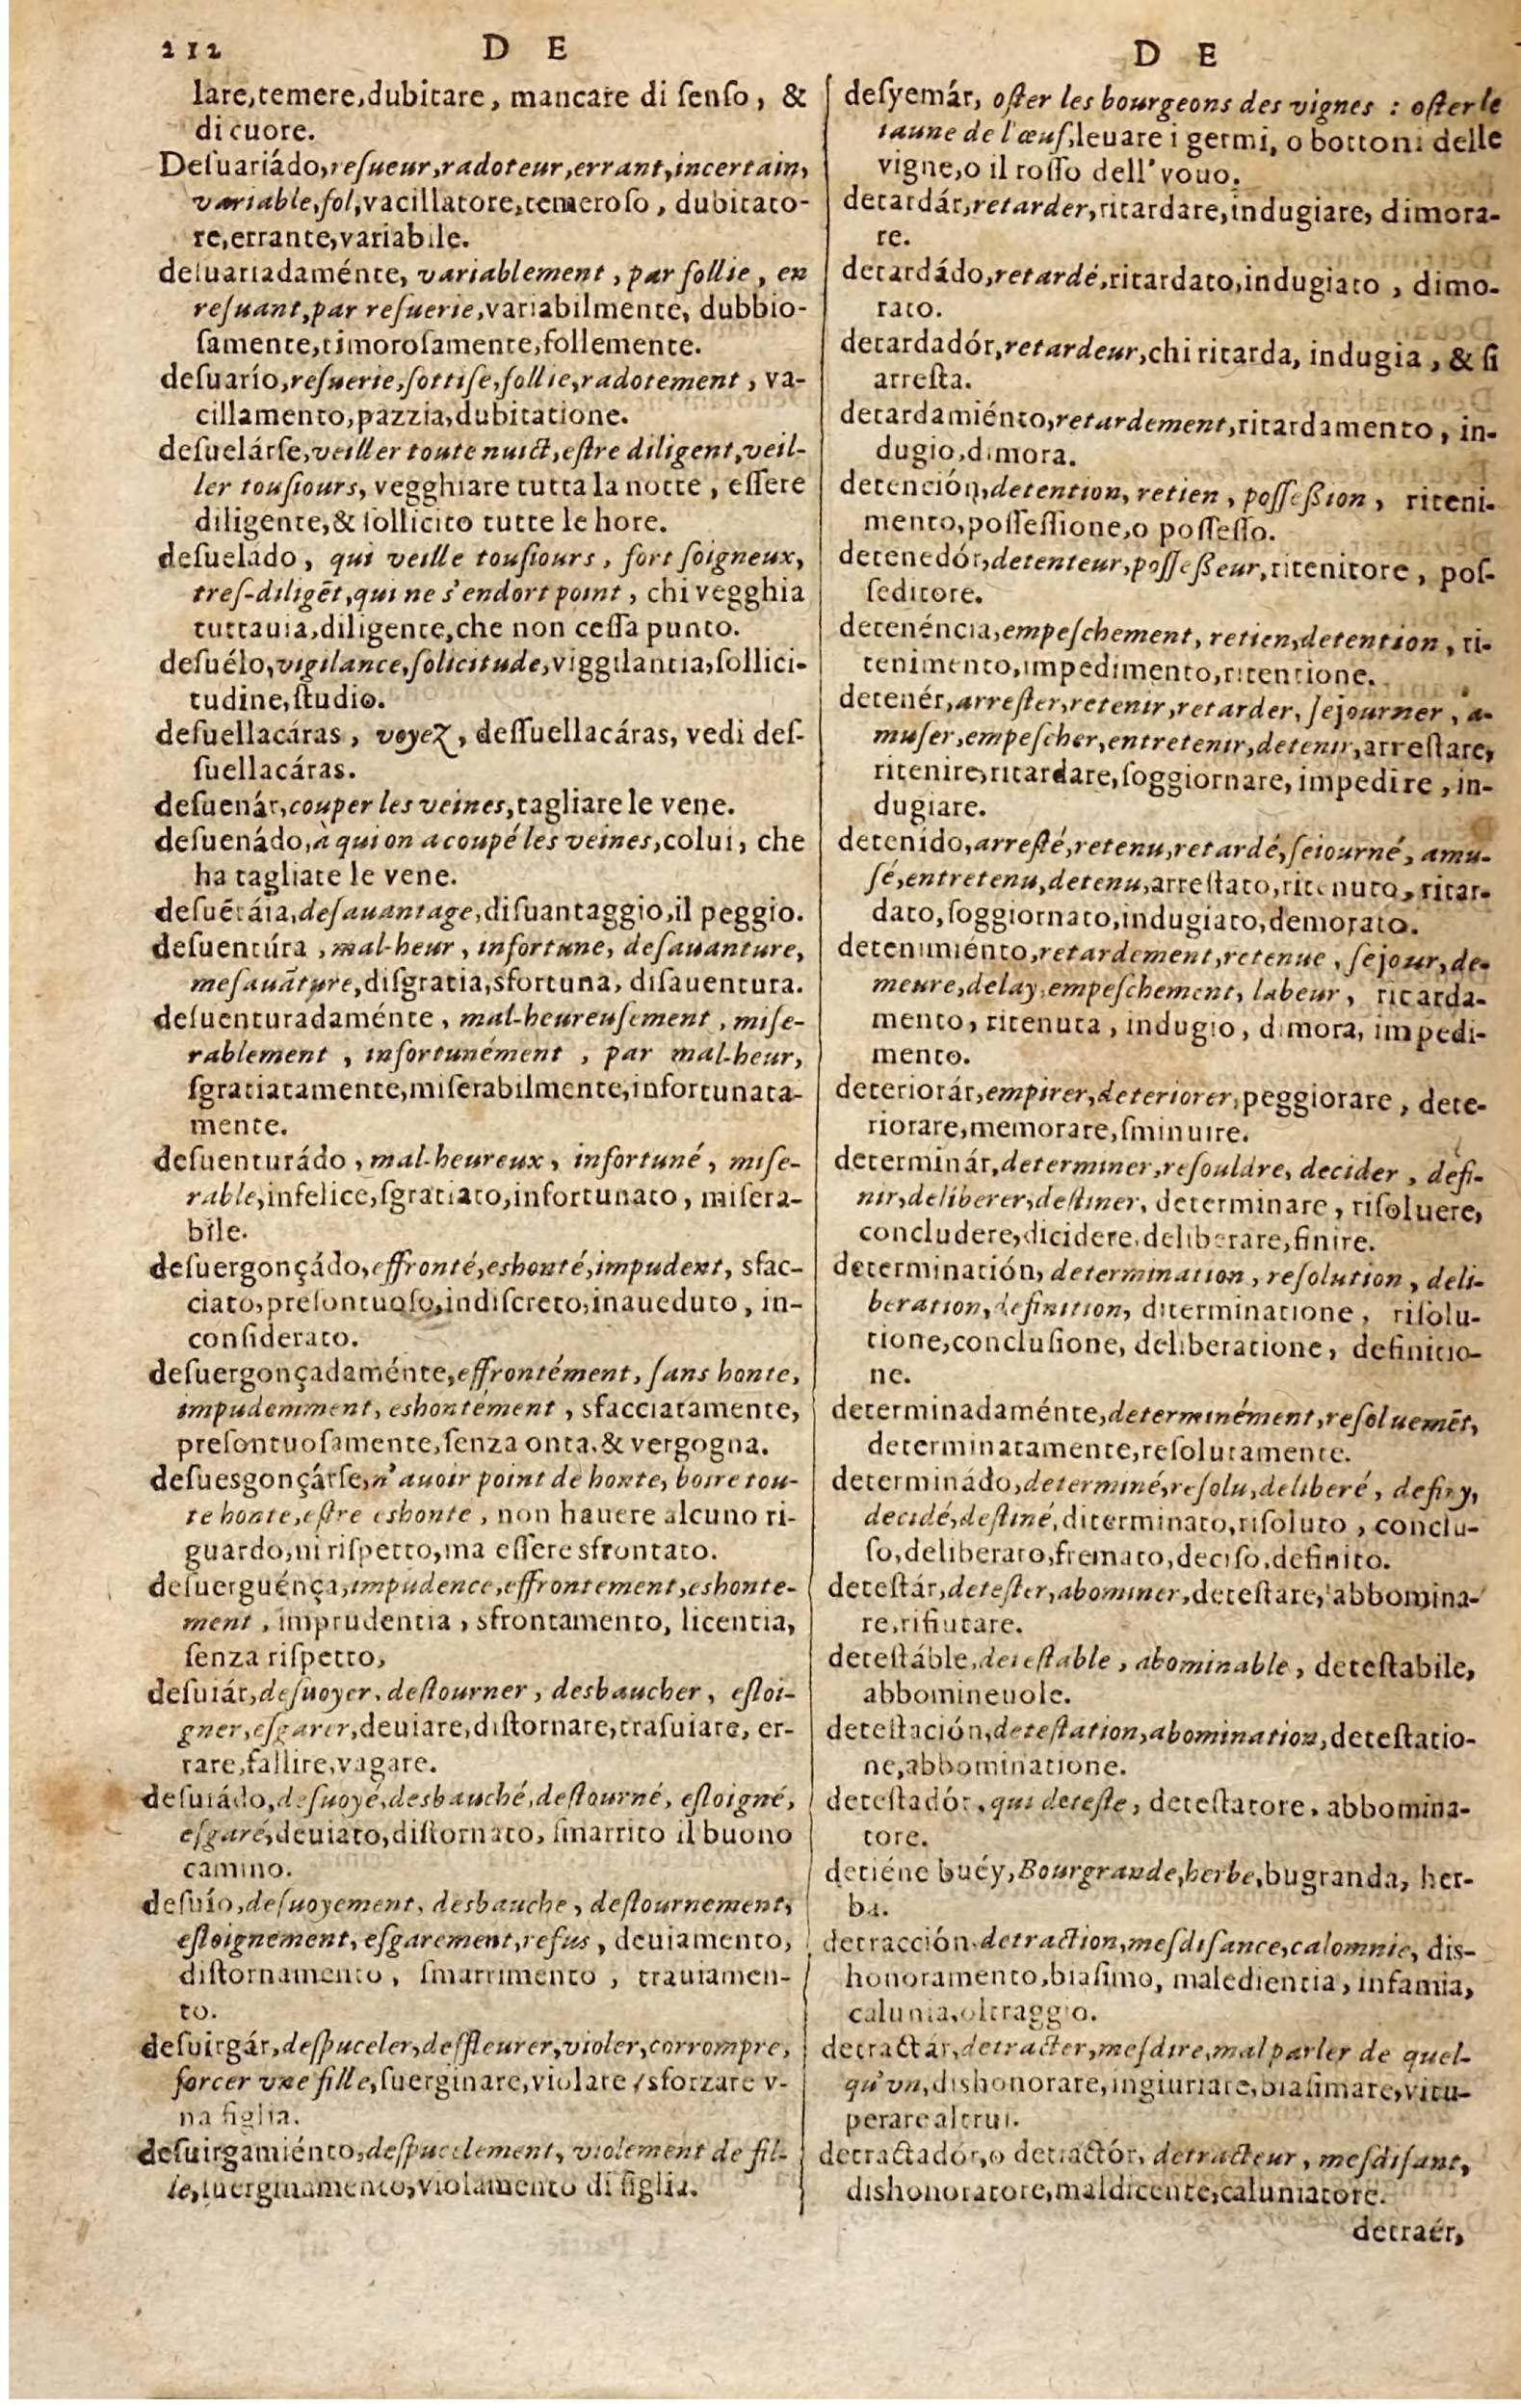 212 D E
lare,temere,dubitare, mancare di ſenſo, &
di cuore.
Deſuariádo,reſueur,radoteur,errant,incertain,
variable,fol,vacillatore,temeroſo, dubitato-
re,errante,variabile.
deſuariadaménte, variablement, par follie, en
reſuant,par reſuerie,variabilmente, dubbio-
ſamente,timoroſamente,follemente.
deſuarío,reſuerie,ſottiſe,follie,radotement, va-
cillamento,pazzia,dubitatione.
deſuelárſe,veiller toute nuict,eſtre diligent,veil-
ler touſiours, vegghiare tutta la notte, eſſere
diligente,& ſollicito tutte le hore.
deſuelado, qui veille touſiours, fort ſoigneux,
treſ-diligẽt,qui ne s'endort point, chi vegghia
tuttauia,diligente,che non ceſſa punto.
deſuélo,vigilance,ſolicitude,viggilantia,ſollici-
tudine,ſtudio.
deſuellacáras, voyez, deſſuellacáras, vedi deſ-
ſuellacáras.
deſuenár,couper les veines,tagliare le vene.
deſuenádo,à qui on a coupé les veines,colui, che
ha tagliate le vene.
deſuẽtáia,deſauantage,diſuantaggio,il peggio.
deſuentúra, mal-heur, infortune, deſauanture,
meſauãture,diſgratia,sfortuna, diſauentura.
deſuenturadaménte, mal-heureuſement, miſe-
rablement, infortunément, par mal-heur,
ſgratiatamente,miſerabilmente,infortunata-
mente.
deſuenturádo, mal-heureux, infortuné, miſe-
rable,infelice,ſgratiato,infortunato, miſera-
bile.
deſuergonçádo,effronté,eshonté,impudent, sfac-
ciato,preſontuoſo,indiſcreto,inaueduto, in-
conſiderato.
deſuergonçadaménte,effrontément, ſans honte,
impudemment, eshontément, sfacciatamente,
preſontuoſamente,ſenza onta,& vergogna.
deſuesgonçárſe,n'auoir point de honte, boire tou-
te honte,eſtre eshonte, non hauere alcuno ri-
guardo,ni riſpetto,ma eſſere sfrontato.
deſuerguénça,impudence,effrontement,eshonte-
ment, imprudentia, sfrontamento, licentia,
ſenza riſpetto,
deſuiár,deſuoyer, deſtourner, desbaucher, eſloi-
gner,eſgarer,deuiare,diſtornare,traſuiare, er-
rare,fallire,vagare.
deſuiádo,deſuoyé,desbauché,deſtourné, eſloigné,
eſgaré,deuiato,diſtornato, ſmarrito il buono
camino.
deſuío,deſuoyement, desbauche, deſtournement,
eſloignement, eſgarement,refus, deuiamento,
diſtornamento, ſmarrimento, trauiamen-
to.
deſuirgár,deſpuceler,deffleurer,violer,corrompre,
forcer vne fille,ſuerginare,violare,sforzare v-
na figlia.
deſuirgamiénto,deſpucelement, violement de fil-
le,ſuerginamento,violamento di figlia.
D E
deſyemár, oſter les bourgeons des vignes : oſter le
iaune de l'œuf,leuare i germi, o bottoni delle
vigne,o il roſſo dell'vouo.
detardár,retarder,ritardare,indugiare, dimora-
re.
detardádo,retardé,ritardato,indugiato, dimo-
rato.
detardadór,retardeur,chi ritarda, indugia, & ſi
arreſta.
detardamiénto,retardement,ritardamento, in-
dugio,dimora.
detención,detention, retien, poſſeßion, riteni-
mento,poſſeſſione,o poſſeſſo.
detenedór,detenteur,poſſeßeur,ritenitore, poſ-
ſeditore.
detenéncia,empeſchement, retien,detention, ri-
tenimento,impedimento,ritentione.
detenér,arreſter,retenir,retarder, ſejourner, a-
muſer,empeſcher,entretenir,detenir,arreſtare,
ritenire,ritardare,ſoggiornare, impedire, in-
dugiare.
detenido,arreſté,retenu,retardé,ſeiourné, amu-
ſé,entretenu,detenu,arreſtato,ritenuto, ritar-
dato,ſoggiornato,indugiato,demorato.
detenimiénto,retardement,retenue, ſejour,de-
meure,delay,empeſchement, labeur, ricarda-
mento, ritenuta, indugio, dimora, impedi-
mento.
deteriorár,empirer,deteriorer,peggiorare, dete-
riorare,memorare,ſminuire.
determinár,determiner,reſouldre, decider, defi-
nir,deliberer,deſtiner, determinare, riſoluere,
concludere,dicidere,deliberare,finire.
determinatión, determination, reſolution, deli-
beration,definition, diterminatione, riſolu-
tione,concluſione, deliberatione, definitio-
ne.
determinadaménte,determinément,reſoluemẽt,
determinatamente,reſolutamente.
determinádo,determiné,reſolu,deliberé, definy,
decidé,deſtiné,diterminato,riſoluto, conclu-
ſo,deliberato,fremato,deciſo,definito.
deteſtár,deteſter,abominer,deteſtare, abbomina-
re,rifiutare.
deteſtáble,deteſtable, abominable, deteſtabile,
abbomineuole.
deteſtación,deteſtation,abomination,deteſtatio-
ne,abbominatione.
deteſtadór, qui deteſte, deteſtatore, abbomina-
tore.
detiéne buéy,Bourgrande,herbe,bugranda, her-
ba.
detracción,detraction,meſdiſance,calomnie, dis-
honoramento,biaſimo, maledientia, infamia,
calunia,oltraggio.
detractár,detracter,meſdire,mal parler de quel-
qu'vn,dishonorare,ingiuriare,biaſimare,vitu-
perare altrui.
detractadór,o detractór, detracteur, meſdiſant,
dishonoratore,maldicente,caluniatore.
detraér,